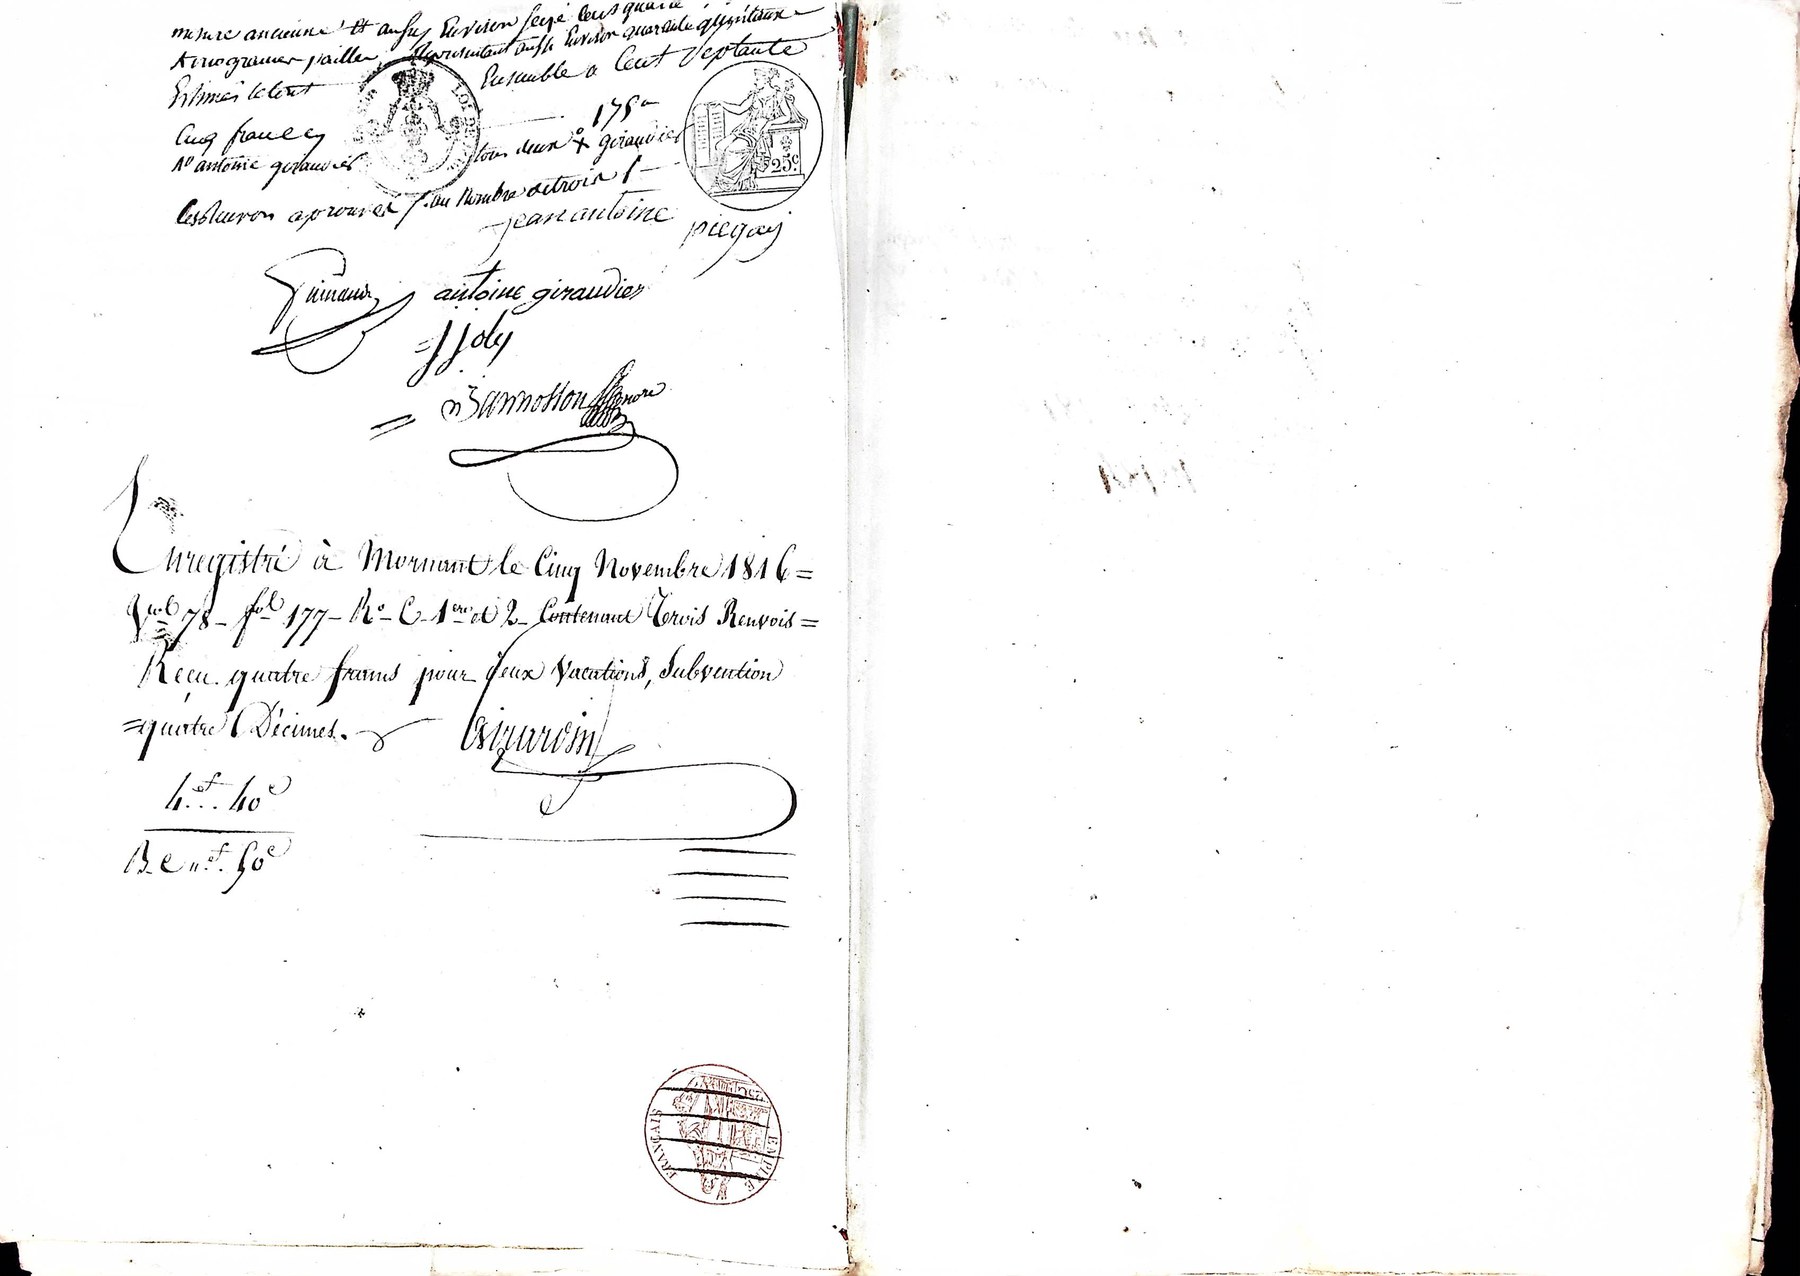 mesure ancienne Et aussy Environ seize cens quarante
Kilogrammes paille, Représentant aussi Environ quarante quintaux
Estimés le tout Ensemble a Cent Septante
Cinq francs 175
Nº antoine giraudier tous deux X giraudier
Les Renvois aprouvés f. au Nombre de trois f
jean antoine piegay
antoine giraudier
= J Joly
Bannosson
Enregistré à Mornant le Cinq Novembre 1816 =
Vol 78 - fol 177 - Rº - C - 1ere et 2 - Contenant Trois Renvois =
Reçu quatre francs pour deux Vacations, Subvention
= quatre Décimes.
4 f 40 c
50 c
LOI
25 c.
EMPIRE FRANÇAIS